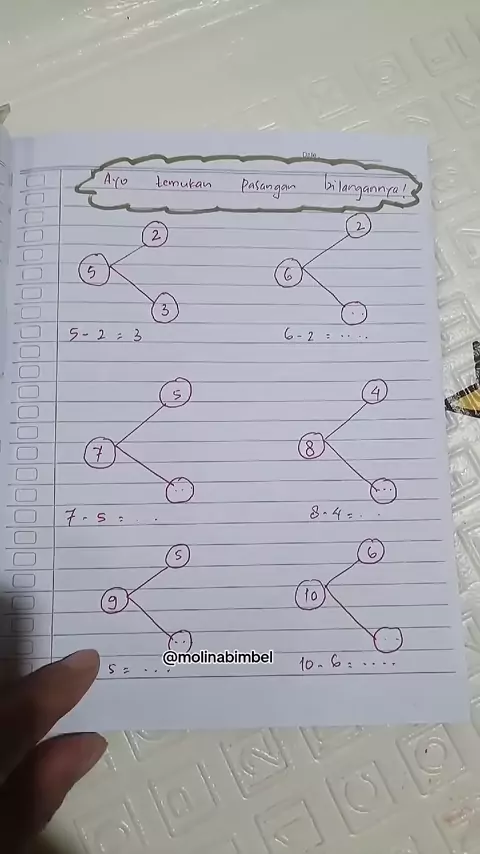 Date
Ayo temukan pasangan bilangannya!
2
5
3
5 - 2 = 3
2
6
..
6 - 2 = ....
5
7
...
7 - 5 = ...
4
8
...
8 - 4 = ..
5
9
...
5 = ....
6
10
...
10 - 6 = ....
@molinabimbel